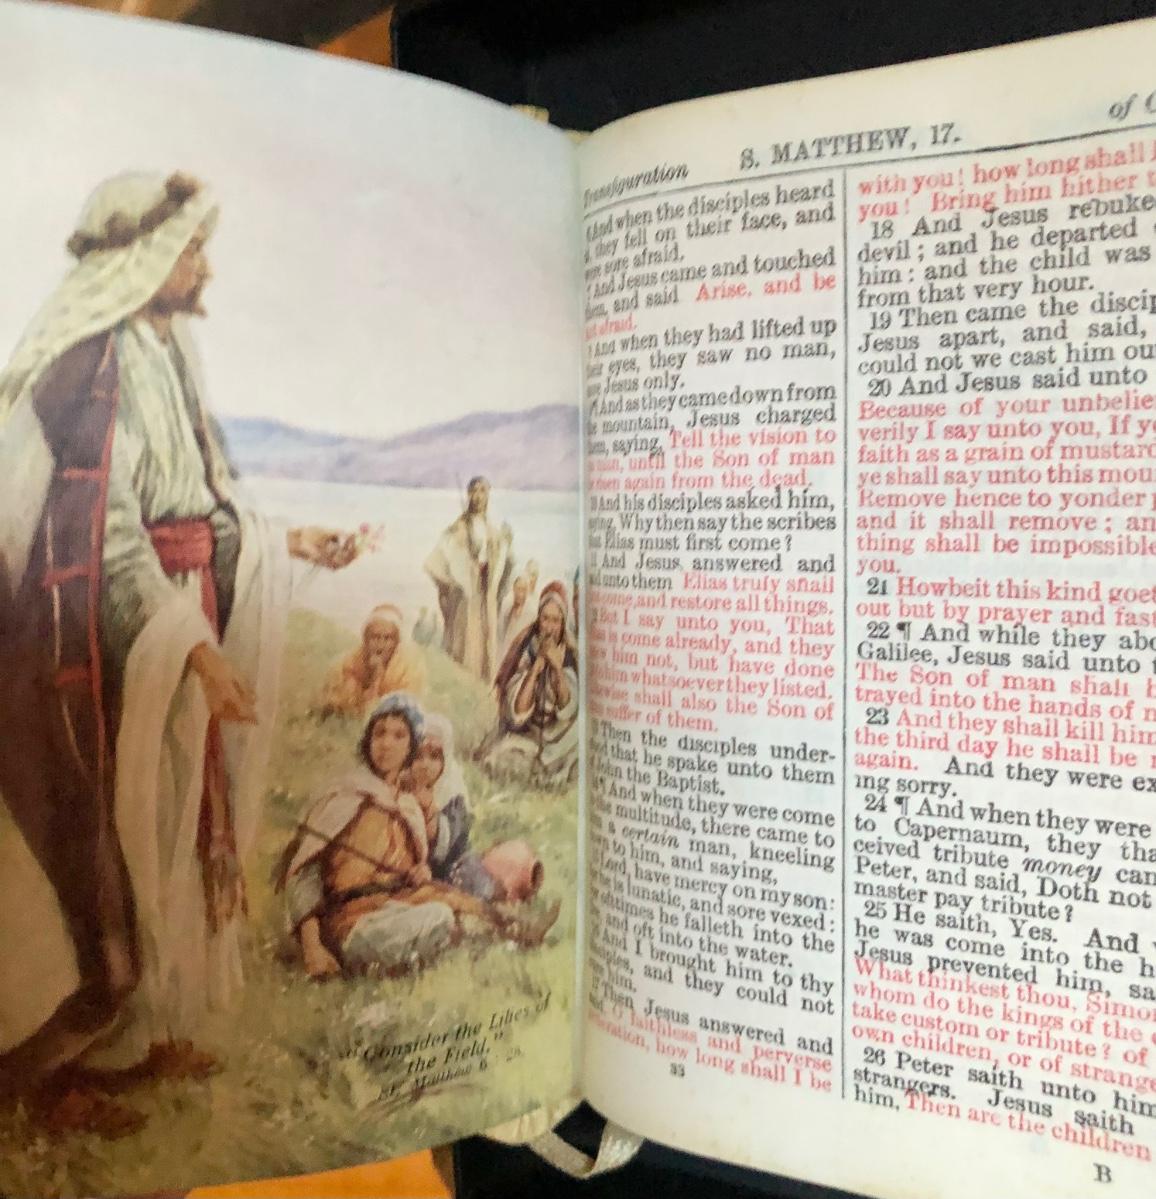 "Consider the Lilies of
the Field."
St. Matthew 6 : 28.
Transfiguration
S. MATTHEW, 17.
of
And when the disciples heard
they fell on their face, and
were sore afraid.
And Jesus came and touched
them, and said Arise, and be
not afraid.
And when they had lifted up
their eyes, they saw no man,
save Jesus only.
And as they came down from
the mountain, Jesus charged
them, saying, Tell the vision to
no man, until the Son of man
be risen again from the dead.
And his disciples asked him,
saying, Why then say the scribes
that Elias must first come?
And Jesus answered and
said unto them Elias truly shall
first come, and restore all things.
But I say unto you, That
Elias is come already, and they
knew him not, but have done
unto him whatsoever they listed.
Likewise shall also the Son of
man suffer of them.
Then the disciples under-
stood that he spake unto them
of John the Baptist.
And when they were come
to the multitude, there came to
him a certain man, kneeling
down to him, and saying,
Lord, have mercy on my son:
for he is lunatic, and sore vexed:
for ofttimes he falleth into the
fire, and oft into the water.
And I brought him to thy
disciples, and they could not
cure him.
Then Jesus answered and
said, O faithless and perverse
generation, how long shall I be
33
with you! how long shall I
you! Bring him hither
18 And Jesus rebuke
devil; and he departed
him: and the child was
from that very hour.
19 Then came the discip
Jesus apart, and said,
could not we cast him ou
20 And Jesus said unto
Because of your unbelie
verily I say unto you, If y
faith as a grain of mustard
ye shall say unto this mou
Remove hence to yonder p
and it shall remove; an
thing shall be impossible
you.
21 Howbeit this kind goet
out but by prayer and fast
22 ¶ And while they abo
Galilee, Jesus said unto
The Son of man shall b
trayed into the hands of m
23 And they shall kill him
the third day he shall be
again. And they were ex
ing sorry.
24 ¶ And when they were
to Capernaum, they tha
ceived tribute money can
Peter, and said, Doth not
master pay tribute?
25 He saith, Yes. And
he was come into the h
Jesus prevented him, sa
What thinkest thou, Simo
whom do the kings of the
take custom or tribute? of
own children, or of strange
26 Peter saith unto him
strangers. Jesus saith
him, Then are the children
B